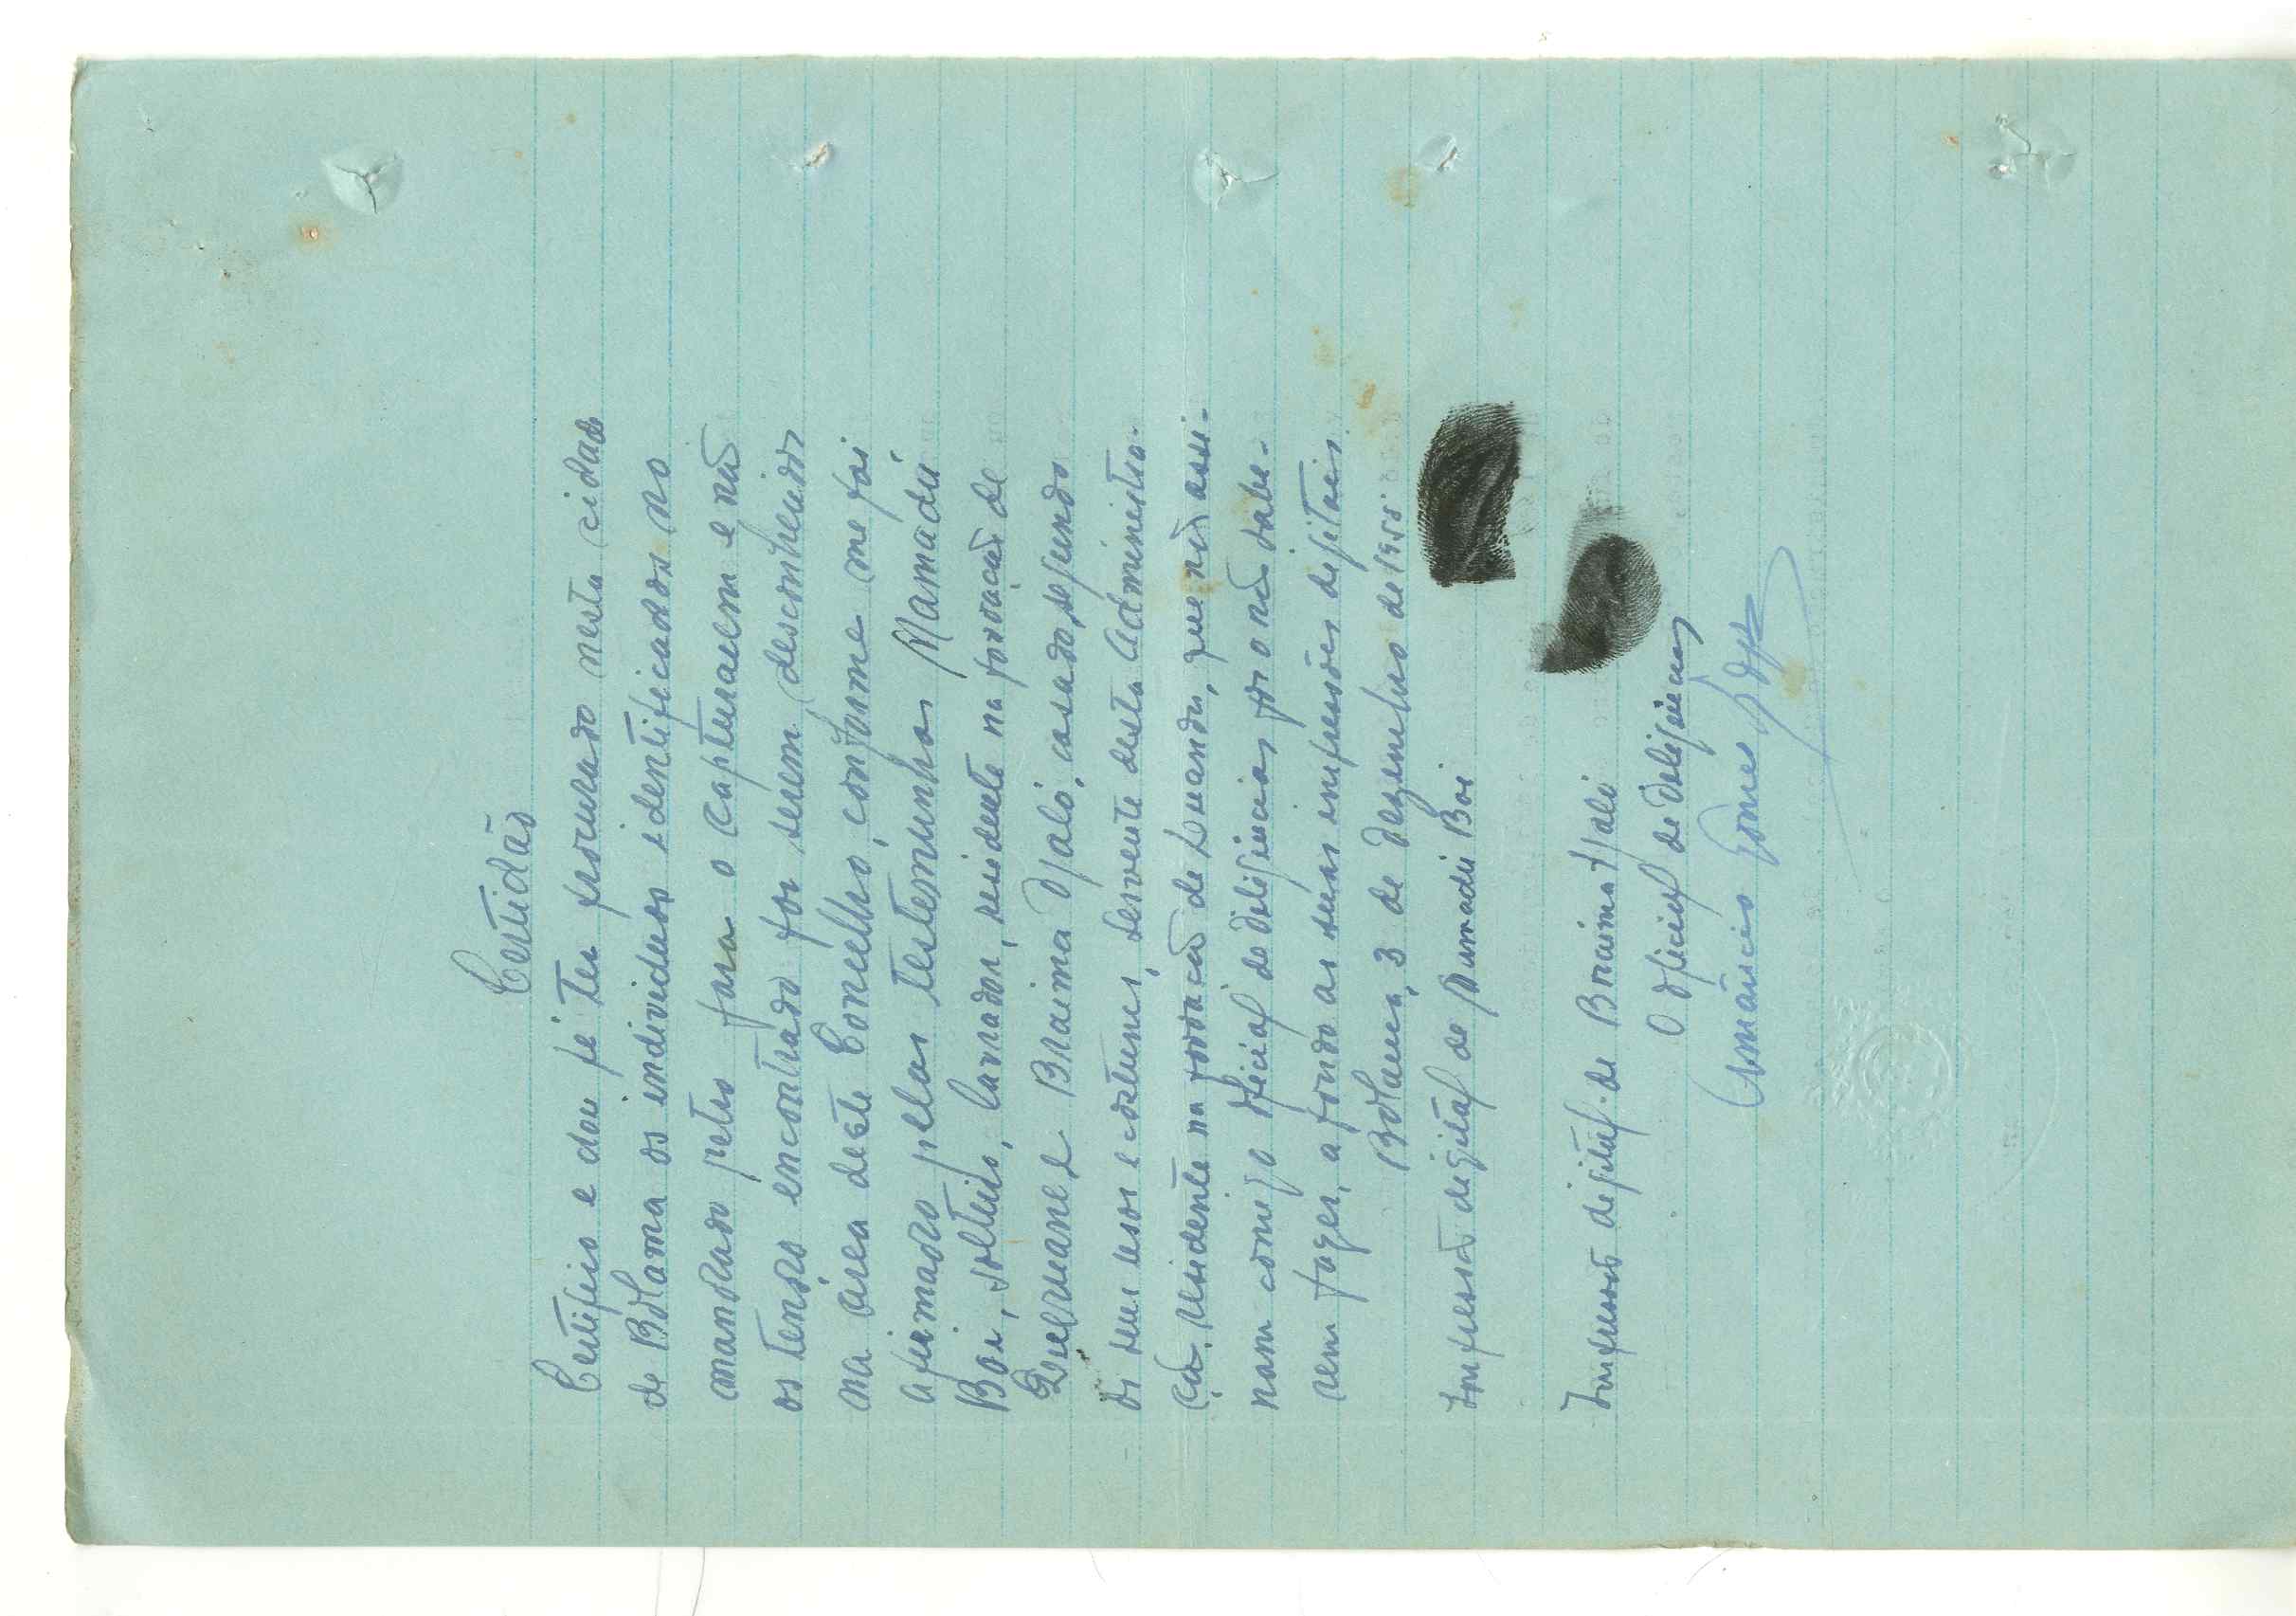 Certidão
Certifico e dou fé ter procurado nesta cidade
de Bolama os individuos identificados no
mandado retro para o capturaem e não
os tendo encontrado por serem desconhecidos
na área deste Concelho, conforme me foi
afirmado pelas testemunhas Mamadú
Boi, solteiro, lavrador, residente na povoação de
e Braima Djaló, casado, segundo
os seus usos e costumes, servente desta Administra-
ção, residente na povoação de Luanda, que não assi-
nam comigo oficial de deligencias por o não sabe-
rem fazer, apondo as suas impressões digitais.
Bolama, 3 de Dezembro de 1955
Impressão digital de Mamadu Boi
Impressão digital de Braima Djaló
O oficial de deligências
Amâncio Gomes